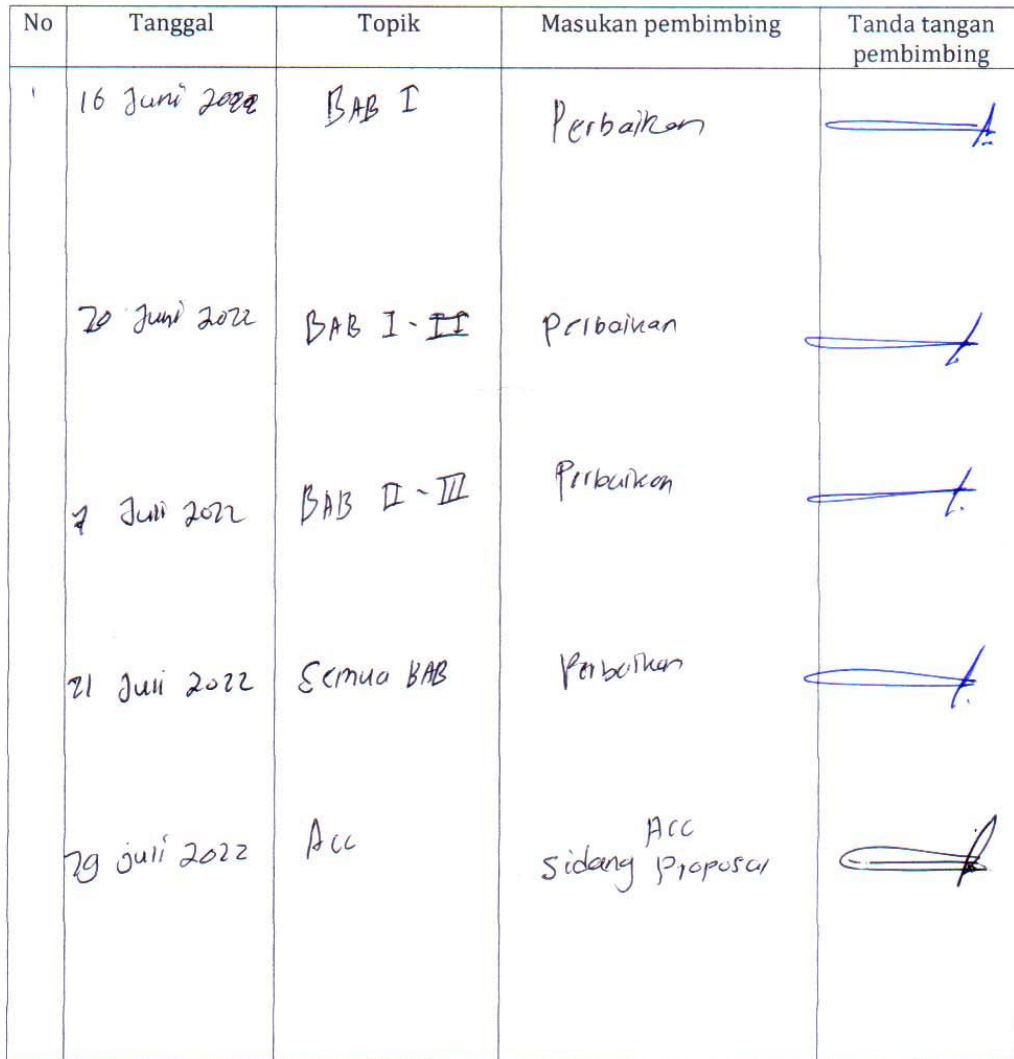 No Tanggal Topik Masukan pembimbing Tanda tangan
pembimbing
1 16 Juni 2022 BAB I Perbaikan
20 Juni 2022 BAB I - II Perbaikan
7 Juli 2022 BAB II - III Perbaikan
21 Juli 2022 Semua BAB Perbaikan
29 juli 2022 Acc Acc
Sidang Proposal